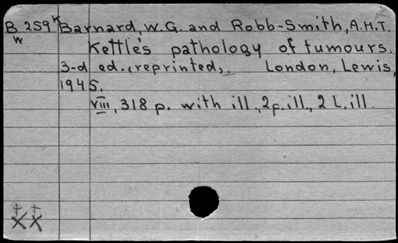 B 259K Barnard, W.G. and Robb-Smith, A.H.T.
w Kettle's pathology of tumours.
3-d ed. (reprinted), London, Lewis,
1945.
VIII, 318 p. with ill., 2p. ill., 2 L. ill.
++
XX